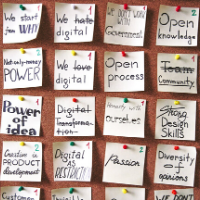 We start
you WHY
We hate
digital
We DON'T WORK
Government
Open
knowledge
Not-only-money
POWER
We love
digital
Open
process
Team
Community
Power of
idea
Digital
Transforma-
tion
with
ourselves
Strong
Design
Skills
Creative in
PRODUCT
development
Digital
as
Passion
Diversity
of
opinions
Customer
WE DON'T